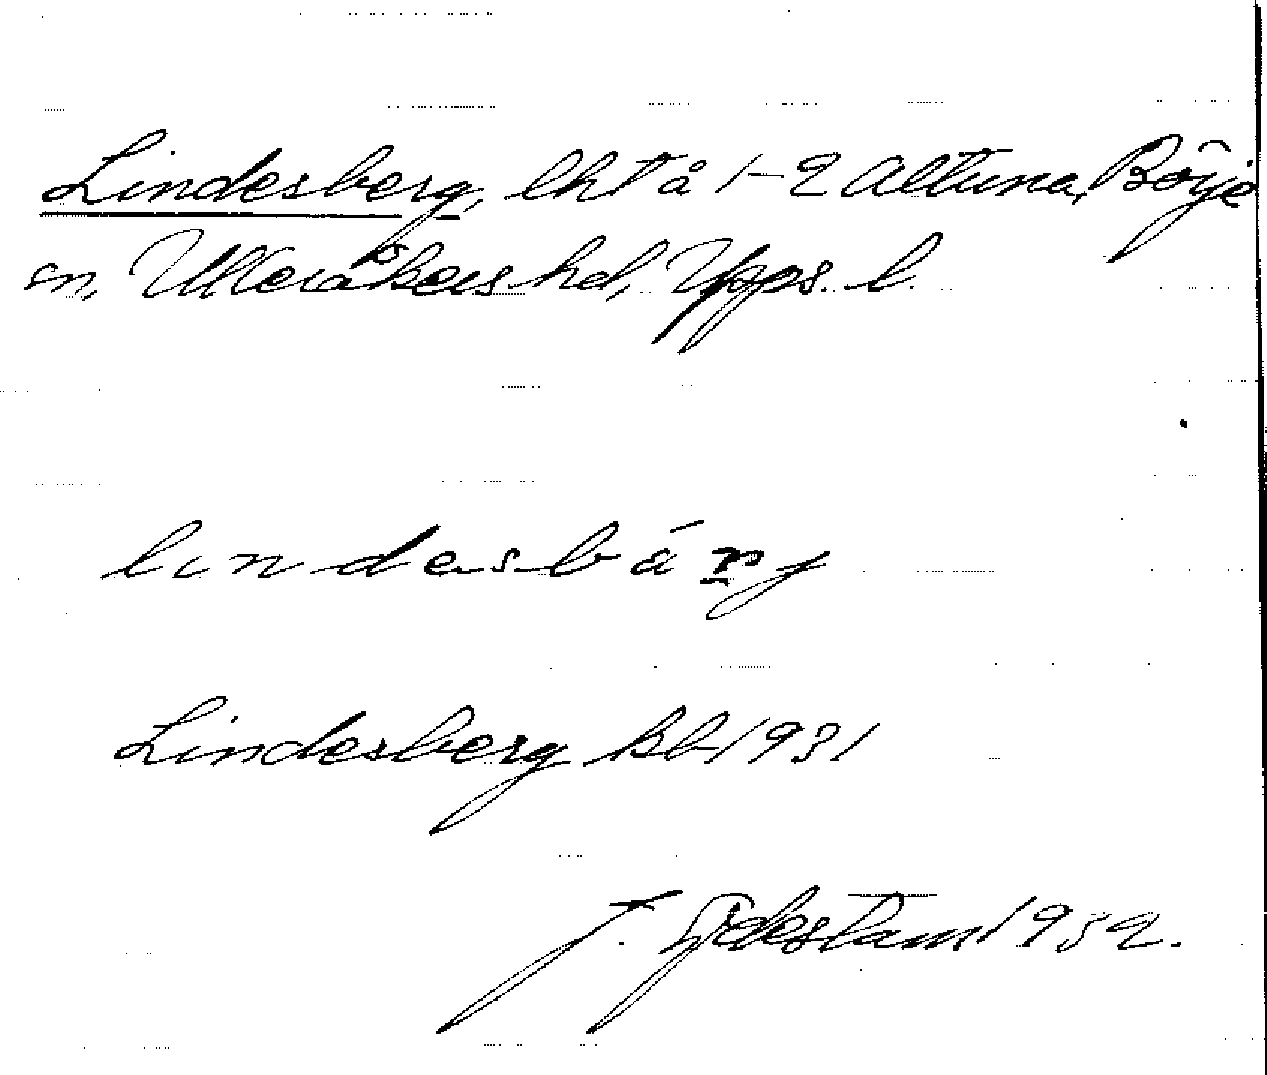 Lindesberg, lht å 1-2 Altuna, Böje
sn, Ulleråkers hd, Upps. l.
lindesbärj
Lindesberg Kb 1931
J. Lydestam 1932.